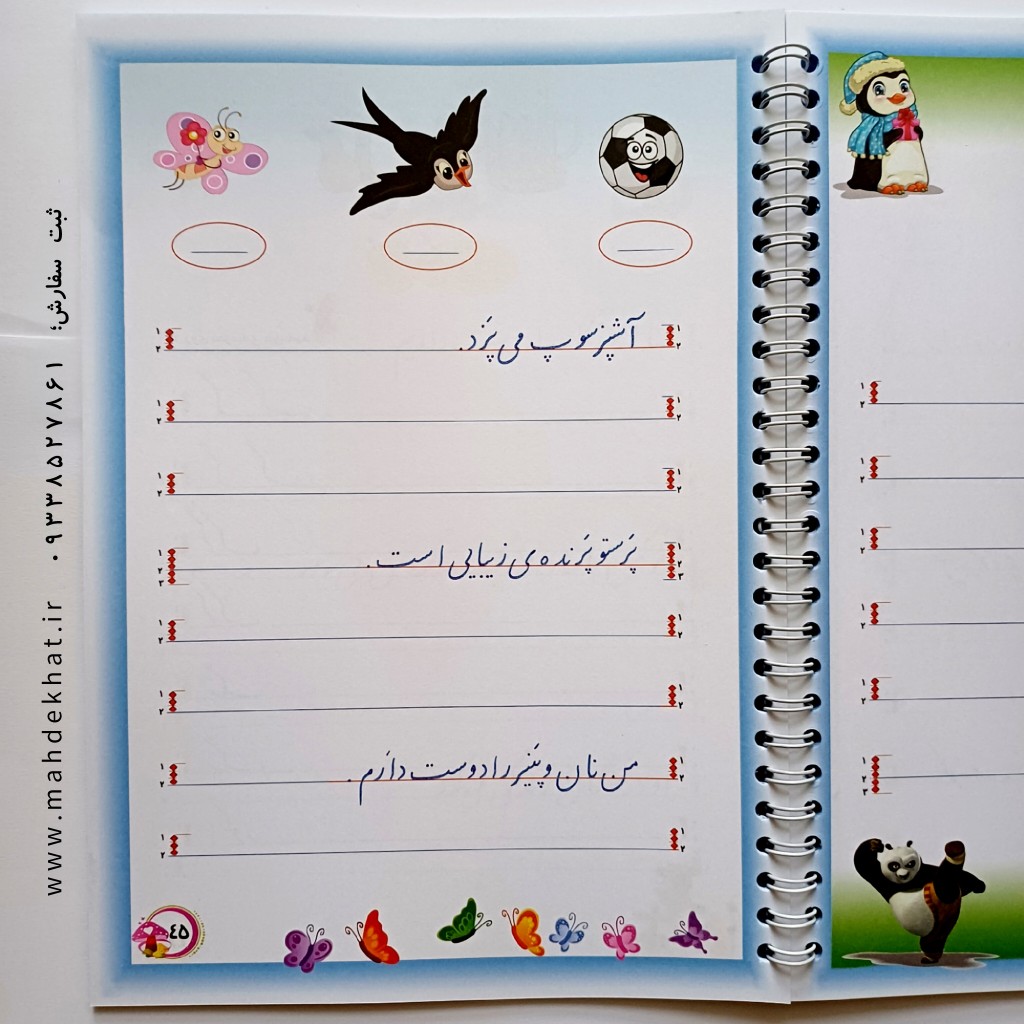 آشپز سوپ می پَزَد.
پَرَستو پَرَنده ی زیبایی است.
من نان و پَنیر را دوست دارَم.
۴۵
ثبت سفارش؛ ۰۹۳۳۸۵۲۷۸۶۱
www.mahdekhat.ir